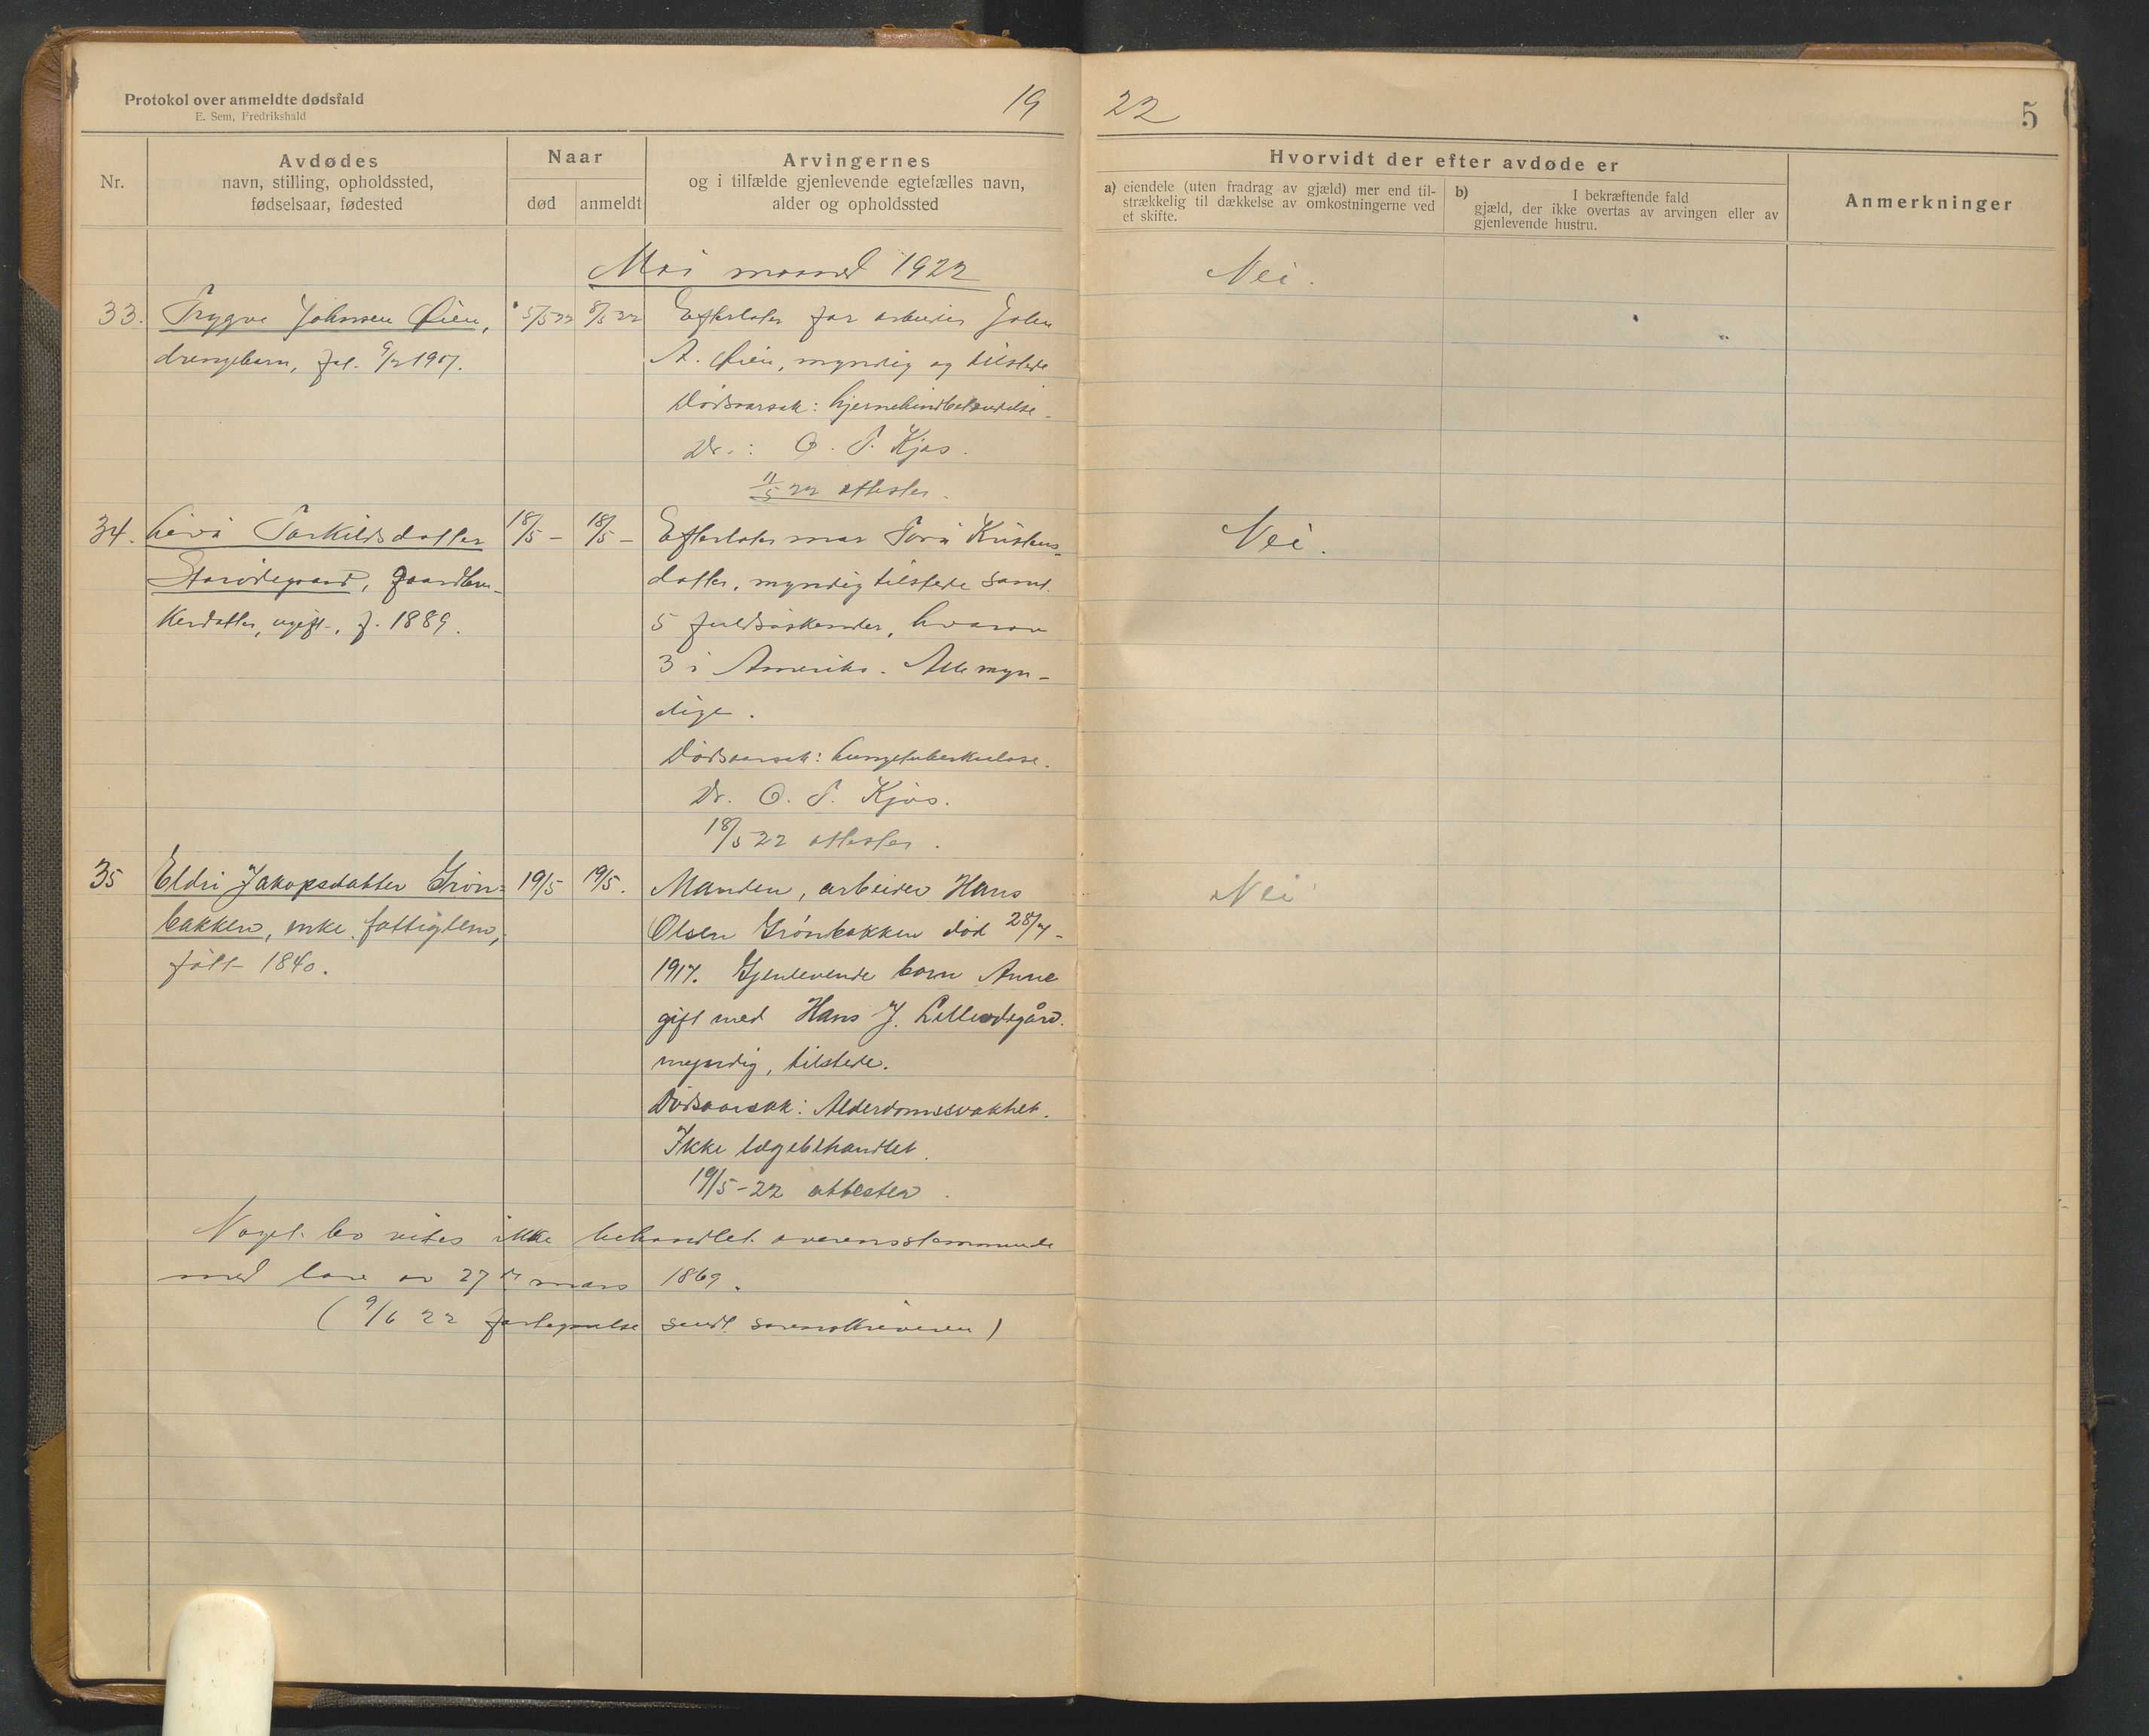 Protokol over anmeldte dødsfald
E. Sem, Fredrikshald
19
22
5
Nr.
Avdødes
navn, stilling, opholdssted,
fødselsaar, fødested
Naar
død
anmeldt
Arvingernes
og i tilfælde gjenlevende egtefælles navn,
alder og opholdssted
Hvorvidt der efter avdøde er
a) eiendele (uten fradrag av gjæld) mer end til-
strækkelig til dækkelse av omkostningerne ved
et skifte.
b) I bekræftende fald
gjæld, der ikke overtas av arvingen eller av
gjenlevende hustru.
Anmerkninger
Mai maaned 1922
33. Trygve Johnsen Øien,
drengebarn,
5/5 22
8/5 22
Efterlater far arbeider John
A. Øien, myndig og tilstede
Dødsaarsak: hjernehindbetændelse.
Dr.: O. T. Kjos.
11/5 22 attester.
Nei.
34. Torkildsdatter
gaardbru-
kerdatter, ugift, f. 1889.
18/5 –
18/5 –
Efterlater mor Kristens-
datter, myndig tilstede samt
5 fuldsøskender, hvorav
3 i Amerika. Alle myn-
dige.
Dødsaarsak: Lungetuberkulose.
Dr. O. T. Kjos.
18/5 22 attester.
Nei.
35 Eldri Jakopsdatter Grøn-
bakken, enke, fattiglem,
født 1840.
19/5
19/5.
Manden, arbeider Hans
Olsen Grønbakken død 28/7-
1917. Gjenlevende barn Anne
gift med Hans J. Lilleødegård.
myndig, tilstede.
Dødsaarsak: Alderdomssvakhet.
Ikke lægebehandlet.
19/5-22 attester.
Nei
Noget bo vites ikke behandlet overensstemmende
med lov av 27de mars 1869.
(9/6 22 fortegnelse sendt sorenskriveren)